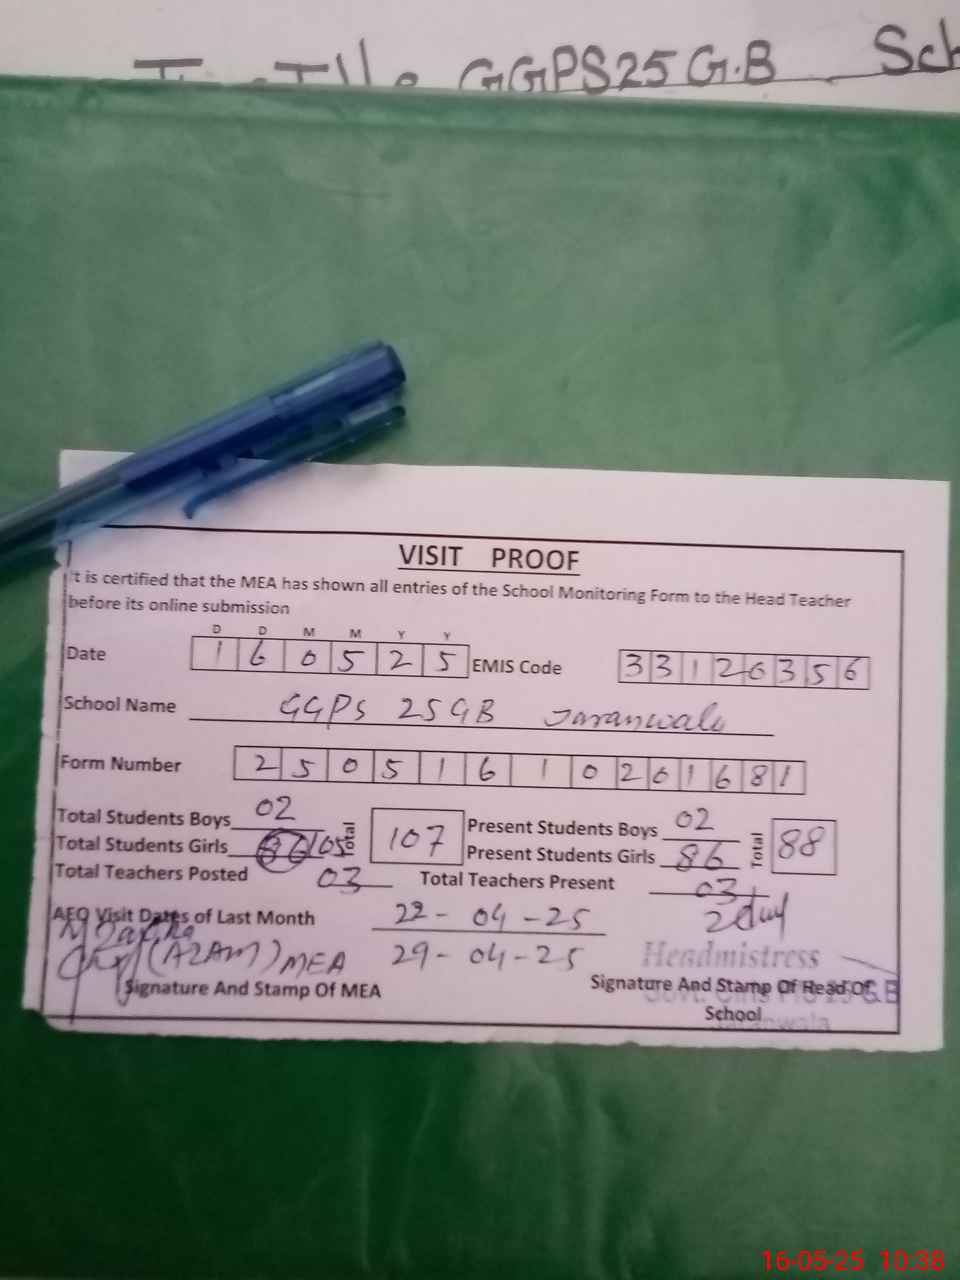 GGPS25 G.B Sch
VISIT PROOF
It is certified that the MEA has shown all entries of the School Monitoring Form to the Head Teacher
before its online submission
D D M M Y Y
Date 1 6 0 5 2 5 EMIS Code 3 3 1 2 0 3 5 6
School Name GGPS 25GB Jaranwala
Form Number 2 5 0 5 1 6 1 0 2 0 1 6 8 1
Total Students Boys 02 Total 107 Present Students Boys 02 Total 88
Total Students Girls 105 Present Students Girls 86
Total Teachers Posted 03 Total Teachers Present 03
AEO Visit Dates of Last Month 22-04-25
29-04-25
(AZAM) MEA
Headmistress
Signature And Stamp Of MEA Signature And Stamp Of Head Of
School
16-05-25 10:38